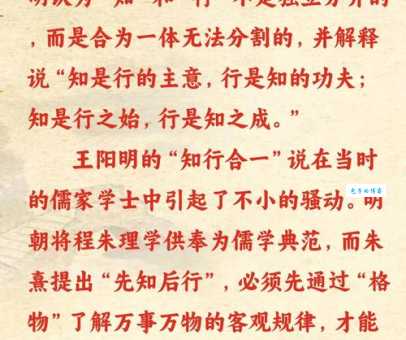 ，而是合为一体无法分割的，并解释
说“知是行的主意，行是知的功夫；
知是行之始，行是知之成。”
王阳明的“知行合一”说在当时
的儒家学士中引起了不小的骚动。明
朝将程朱理学供奉为儒学典范，而朱
熹提出“先知后行”，必须先通过“格
物”了解万事万物的客观规律，才能